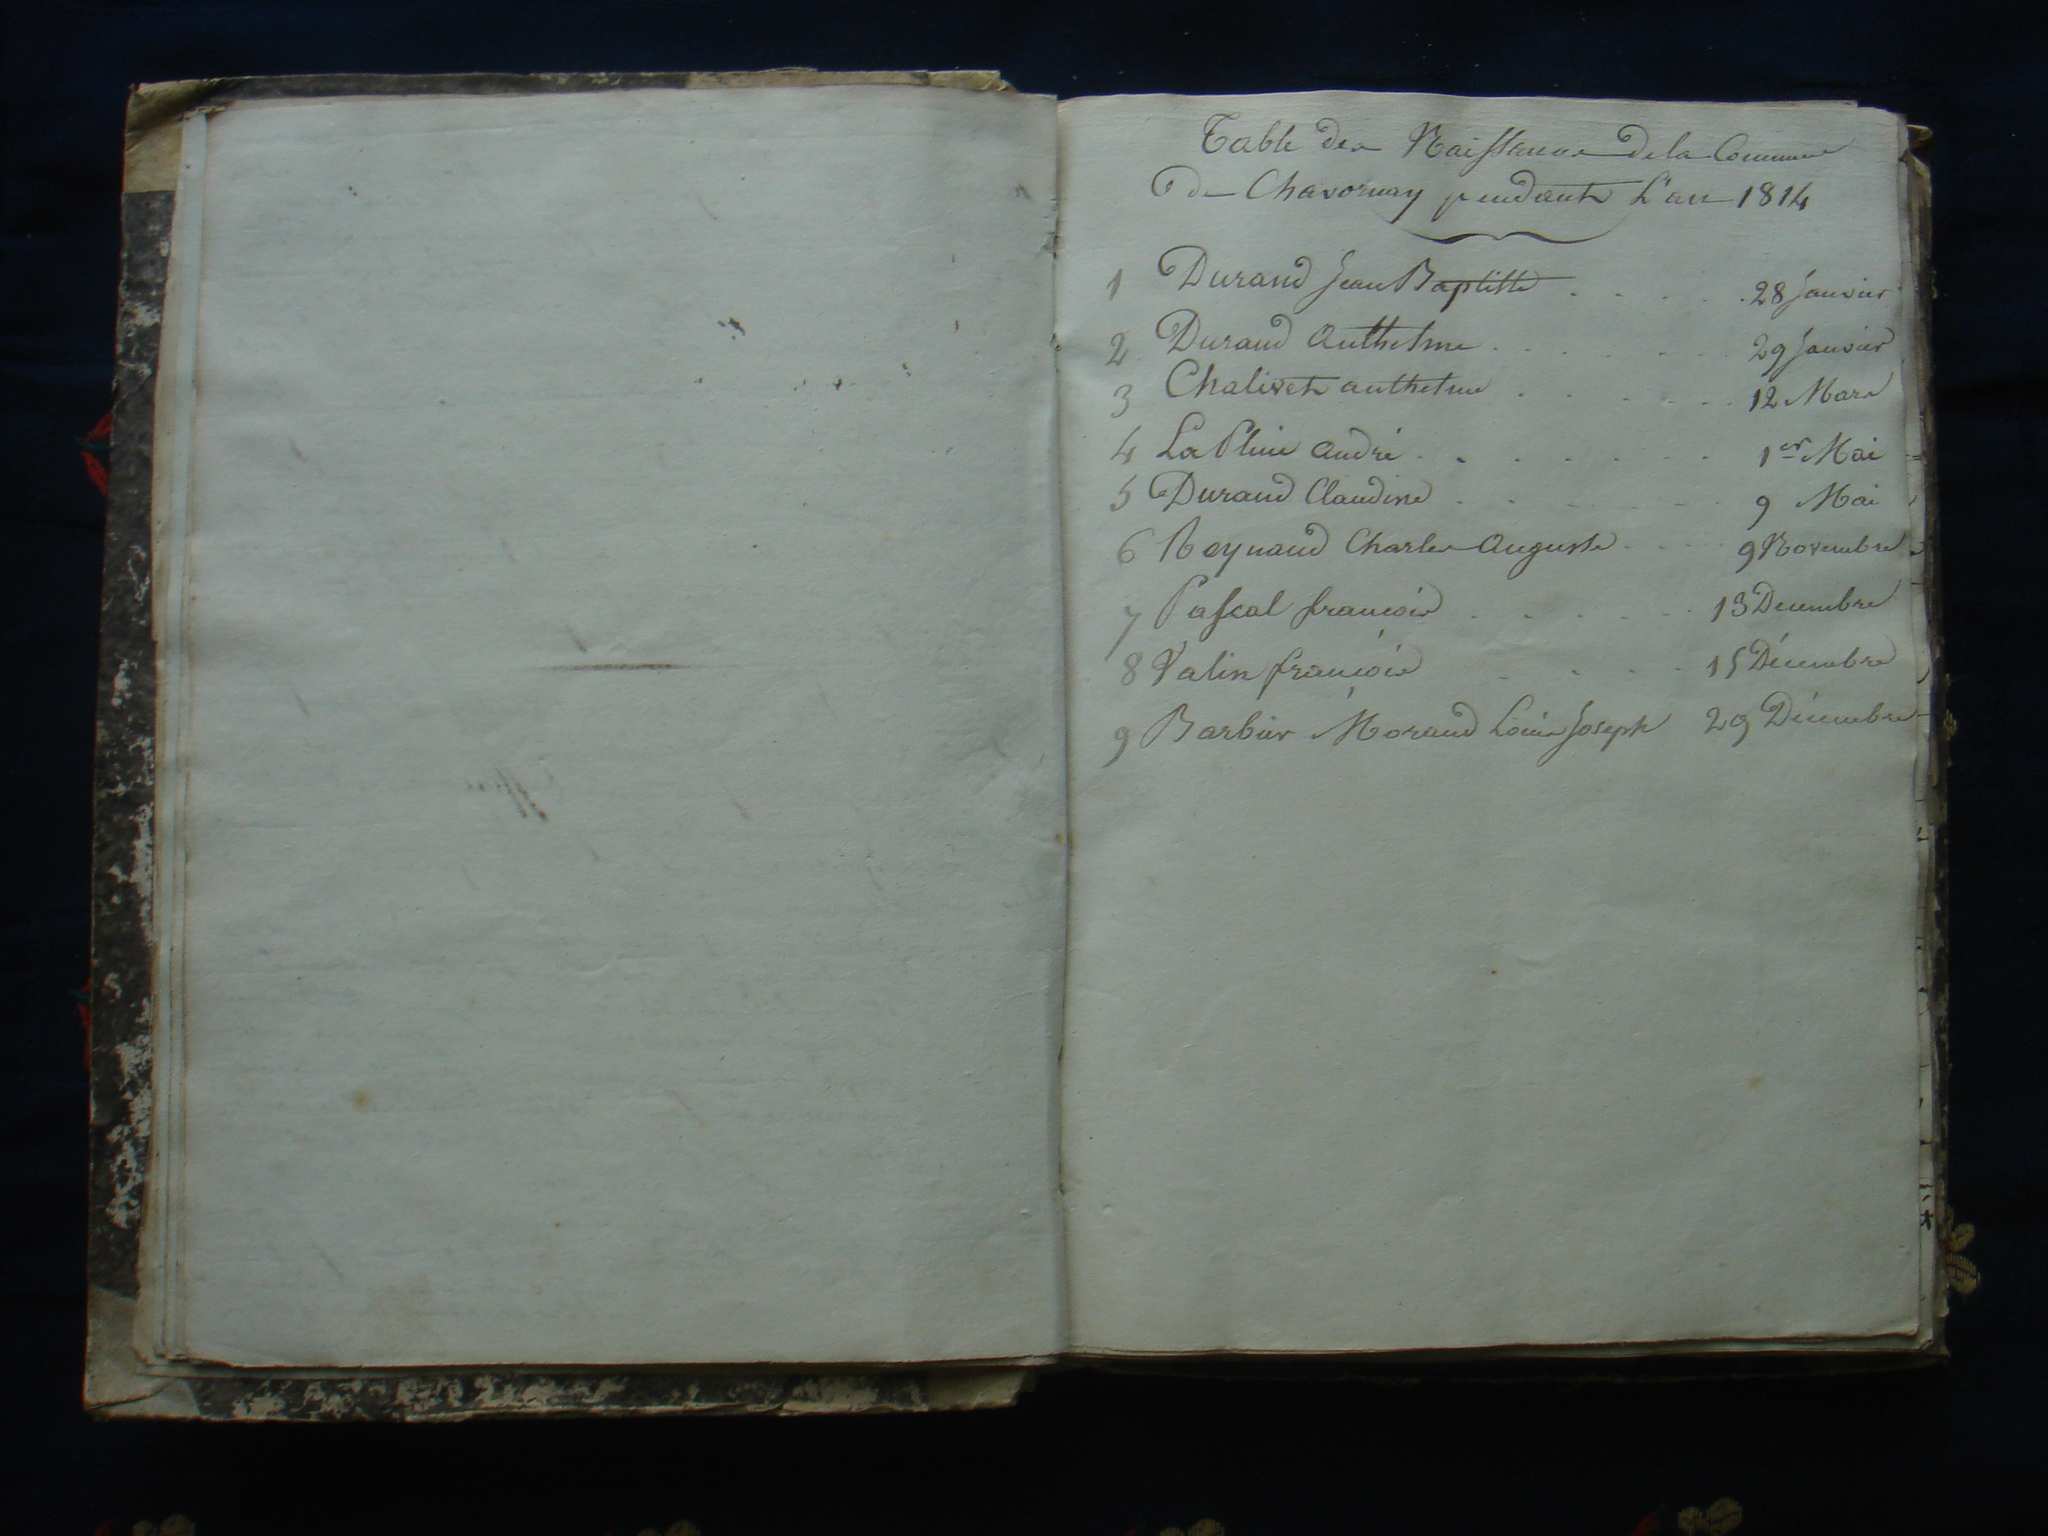 Table des Naissances de la Commune
de Chavornay pendant L'an 1814
1 Durand Jean Baptiste . . . . . 28 Janvier
2 Durand Anthelme . . . . . . . 29 Janvier
3 Chalivet anthelme . . . . . . . 12 Mars
4 La Pluie André . . . . . . . . 1er Mai
5 Durand Claudine . . . . . . 9 Mai
6 Reynaud Charles Auguste . . . . 9 Novembre
7 Pascal francois . . . . . . 13 Decembre
8 Valin françois . . . . 15 Décembre
9 Barbier Morand Louis Joseph 29 Décembre